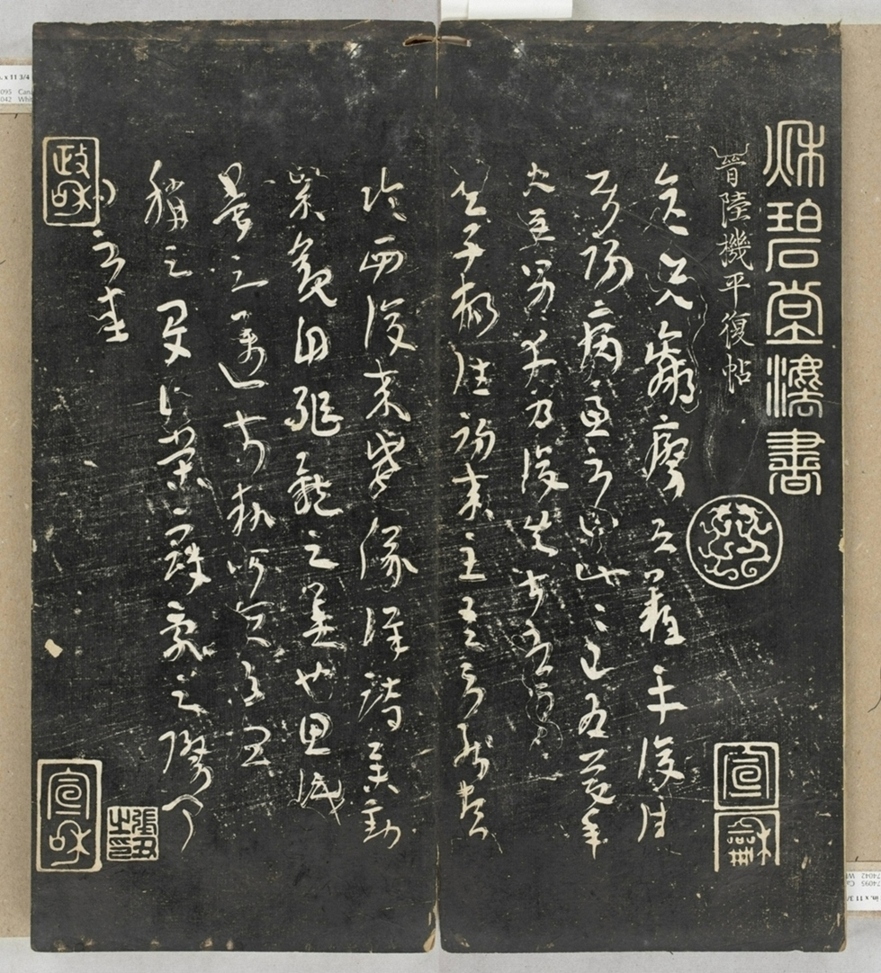 秌碧堂灋書
晉陸機平復帖
彥先羸瘵恐難平復往
屬初病慮不止此此已為慶承
使唯男幸為復失前憂耳
吳子楊往初來主吾不能盡
臨西復來威儀詳跱舉動
成觀自軀體之美也思識
量之邁前執所恒有宜
稱之夏伯榮寇亂之際聞
問不悉
宣龢
政和
宣和
張丑之印